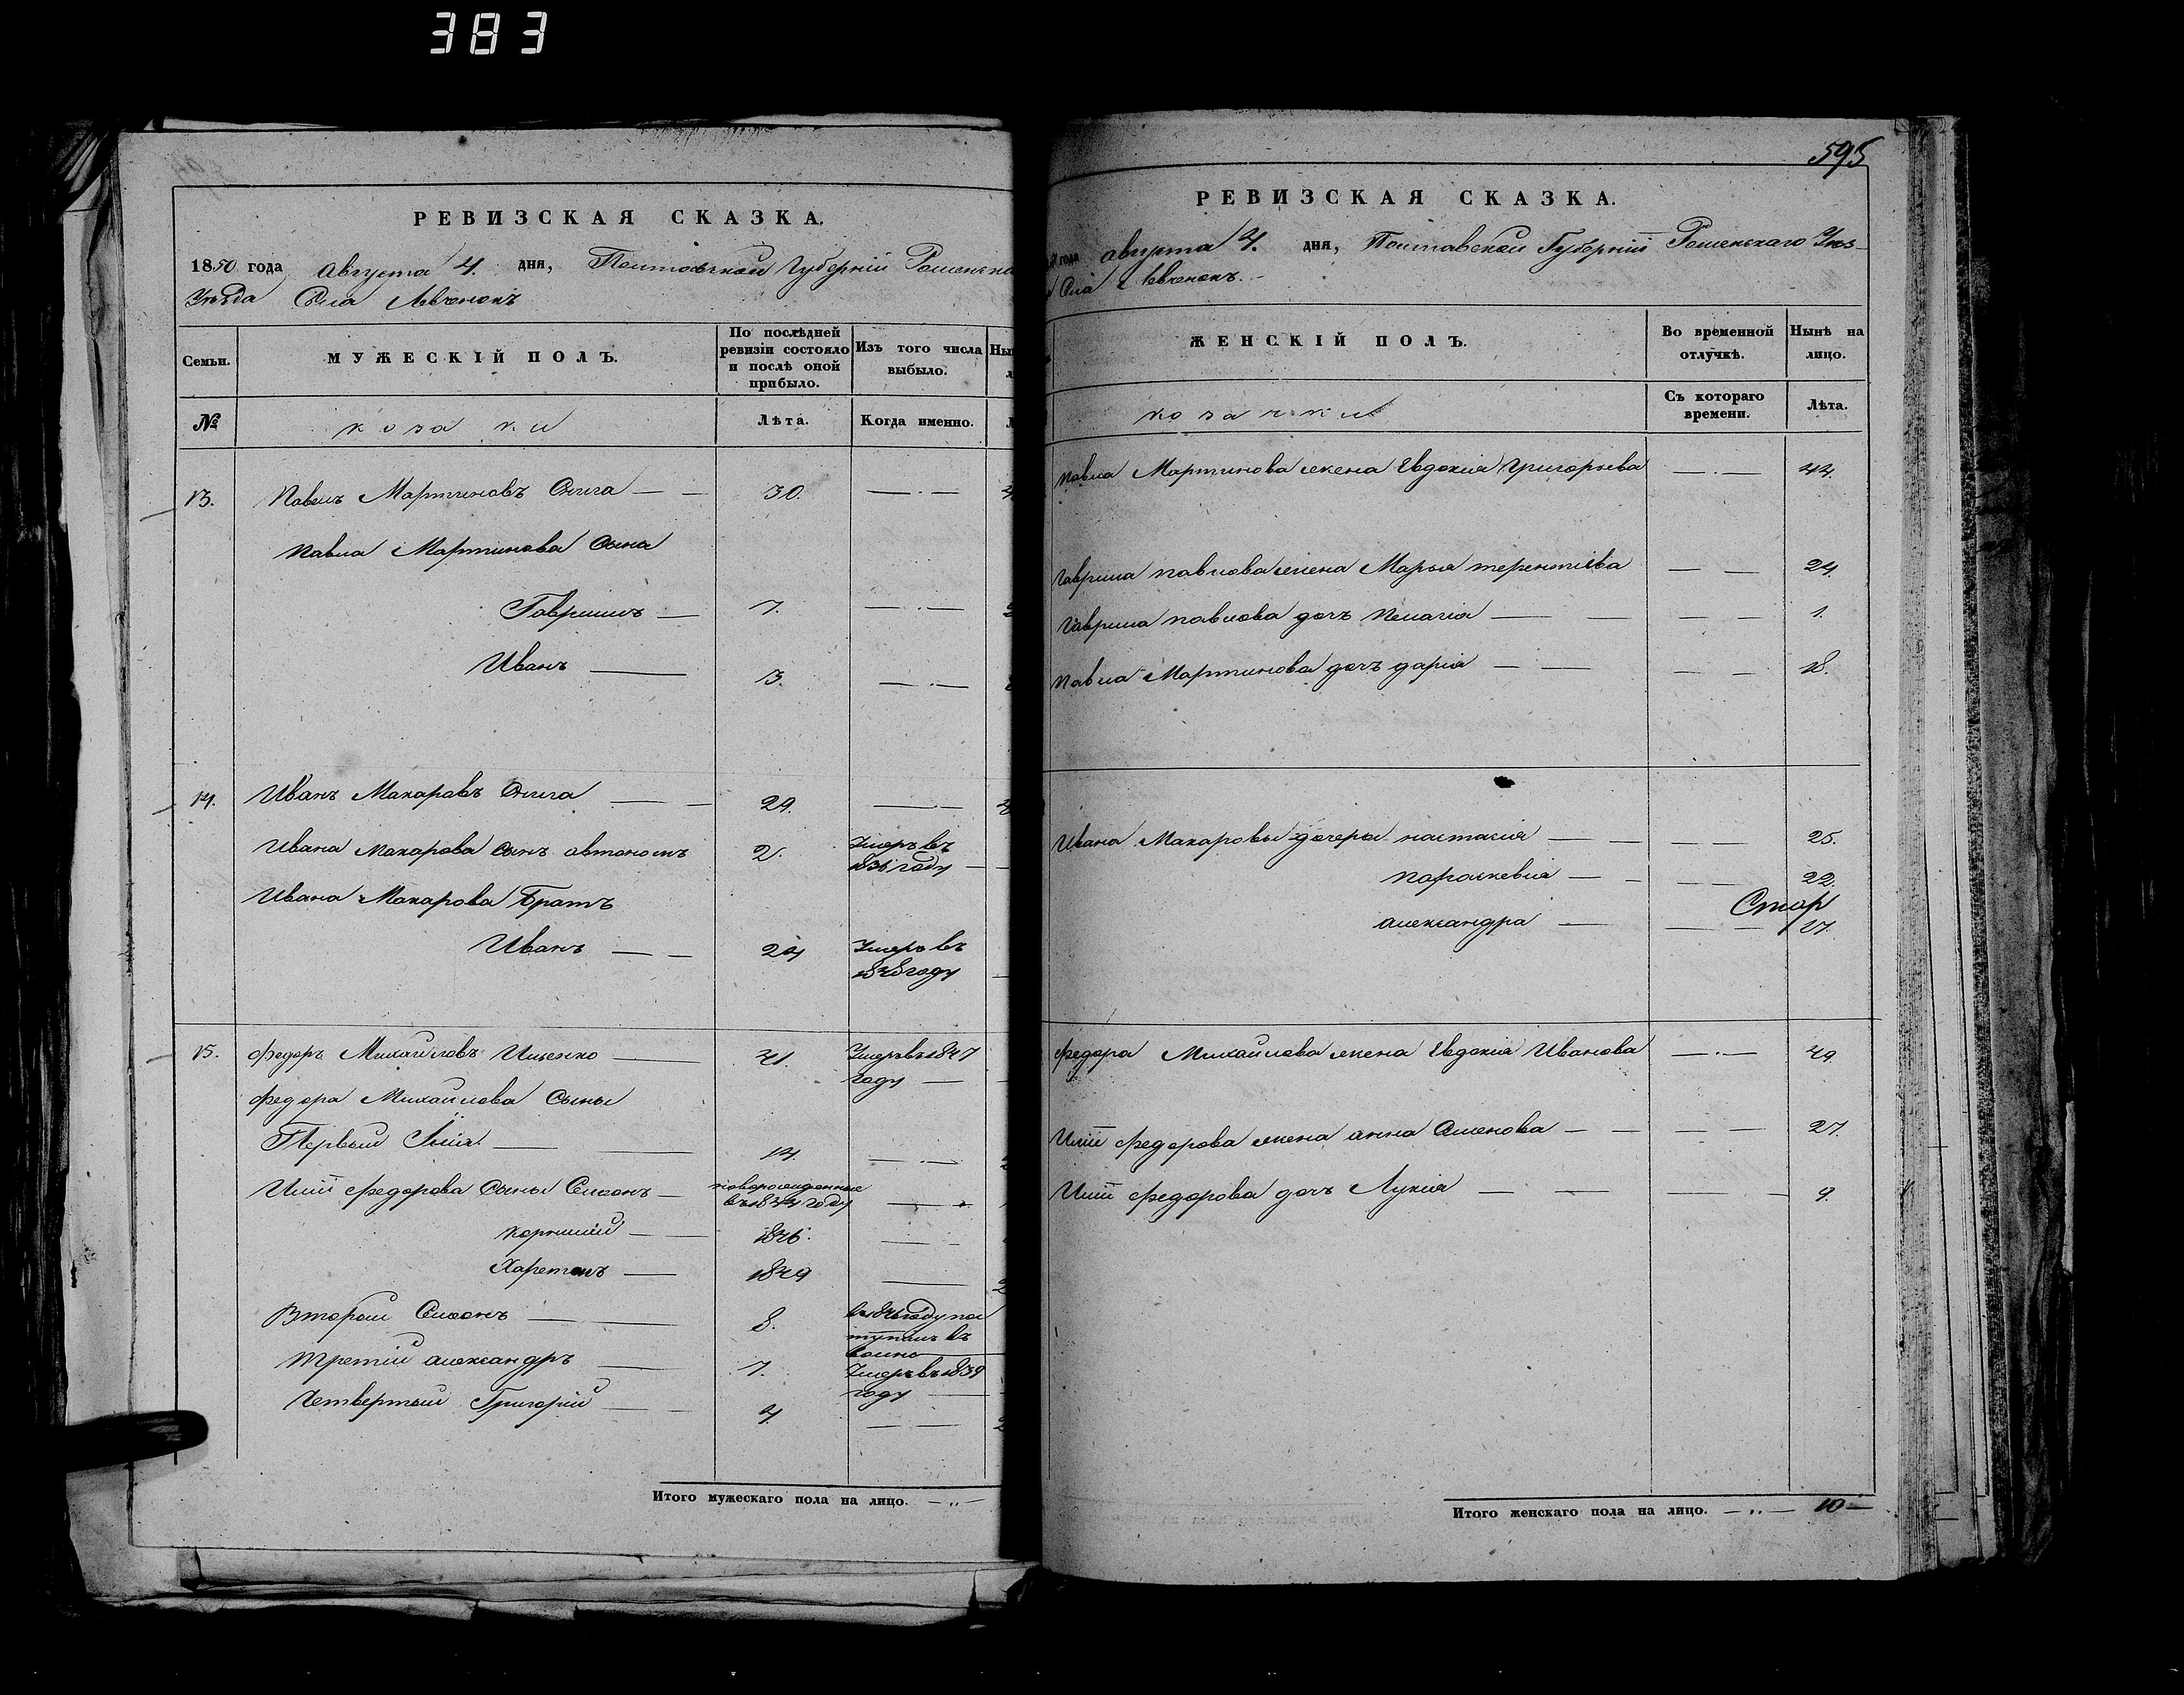 383
РЕВИЗСКАЯ СКАЗКА.
1850 года августа 4. дня, Полтавской Губерніи Роменска
Уѣзда Села Левченокъ
Семьи.
МУЖЕСКІЙ ПОЛЪ.
По послѣдней ревизіи состояло и послѣ оной прибыло.
Изъ того числа выбыло.
№
козаки
Лѣта.
Когда именно.
13. Павелъ Мартиновъ 30.
Павла Мартинова Сына
Гаврилъ 7.
Иванъ 3.
14. Иванъ Макаровъ 29.
Ивана Макарова Сынъ автономъ 2. Умеръ въ
1836 году
Ивана Макарова Братъ
Иванъ 24 Умеръ въ
1848 году
15. Федоръ Михайловъ Ильенко 41. Умеръ въ 1847
году
Федора Михайлова Сыны
Первый Илія 14.
Иліи Федорова Сыны Симонъ новорожденные
въ 1844 году
Корнилій 1846.
Харетонъ 1849
Вторый Симонъ 8.
Третій александръ 7. Умеръ въ 1839
году
Четвертый Григорій 4.
Итого мужескаго пола на лицо.
595
РЕВИЗСКАЯ СКАЗКА.
года августа 4. дня, Полтавской Губерніи Роменскаго Уѣз-
Села Левченокъ.
ЖЕНСКІЙ ПОЛЪ.
Во временной отлучкѣ.
Нынѣ на лицо.
козачки
Съ котораго времени.
Лѣта.
Павла Мартинова жена Евдокія Григорьева 44.
Гаврила Павлова жена Марья терентіева 24.
Гаврила Павлова дочъ Пелагія 1.
Павла Мартинова дочъ дарія 18.
Ивана Макаровы дочеры настасія 25.
Параскевія 22.
александра 17.
Федора Михайлова жена Евдокія Иванова 49.
Иліи Федорова жена анна Семенова 27.
Иліи Федорова дочъ Лукія 9.
Итого женскаго пола на лицо. 10